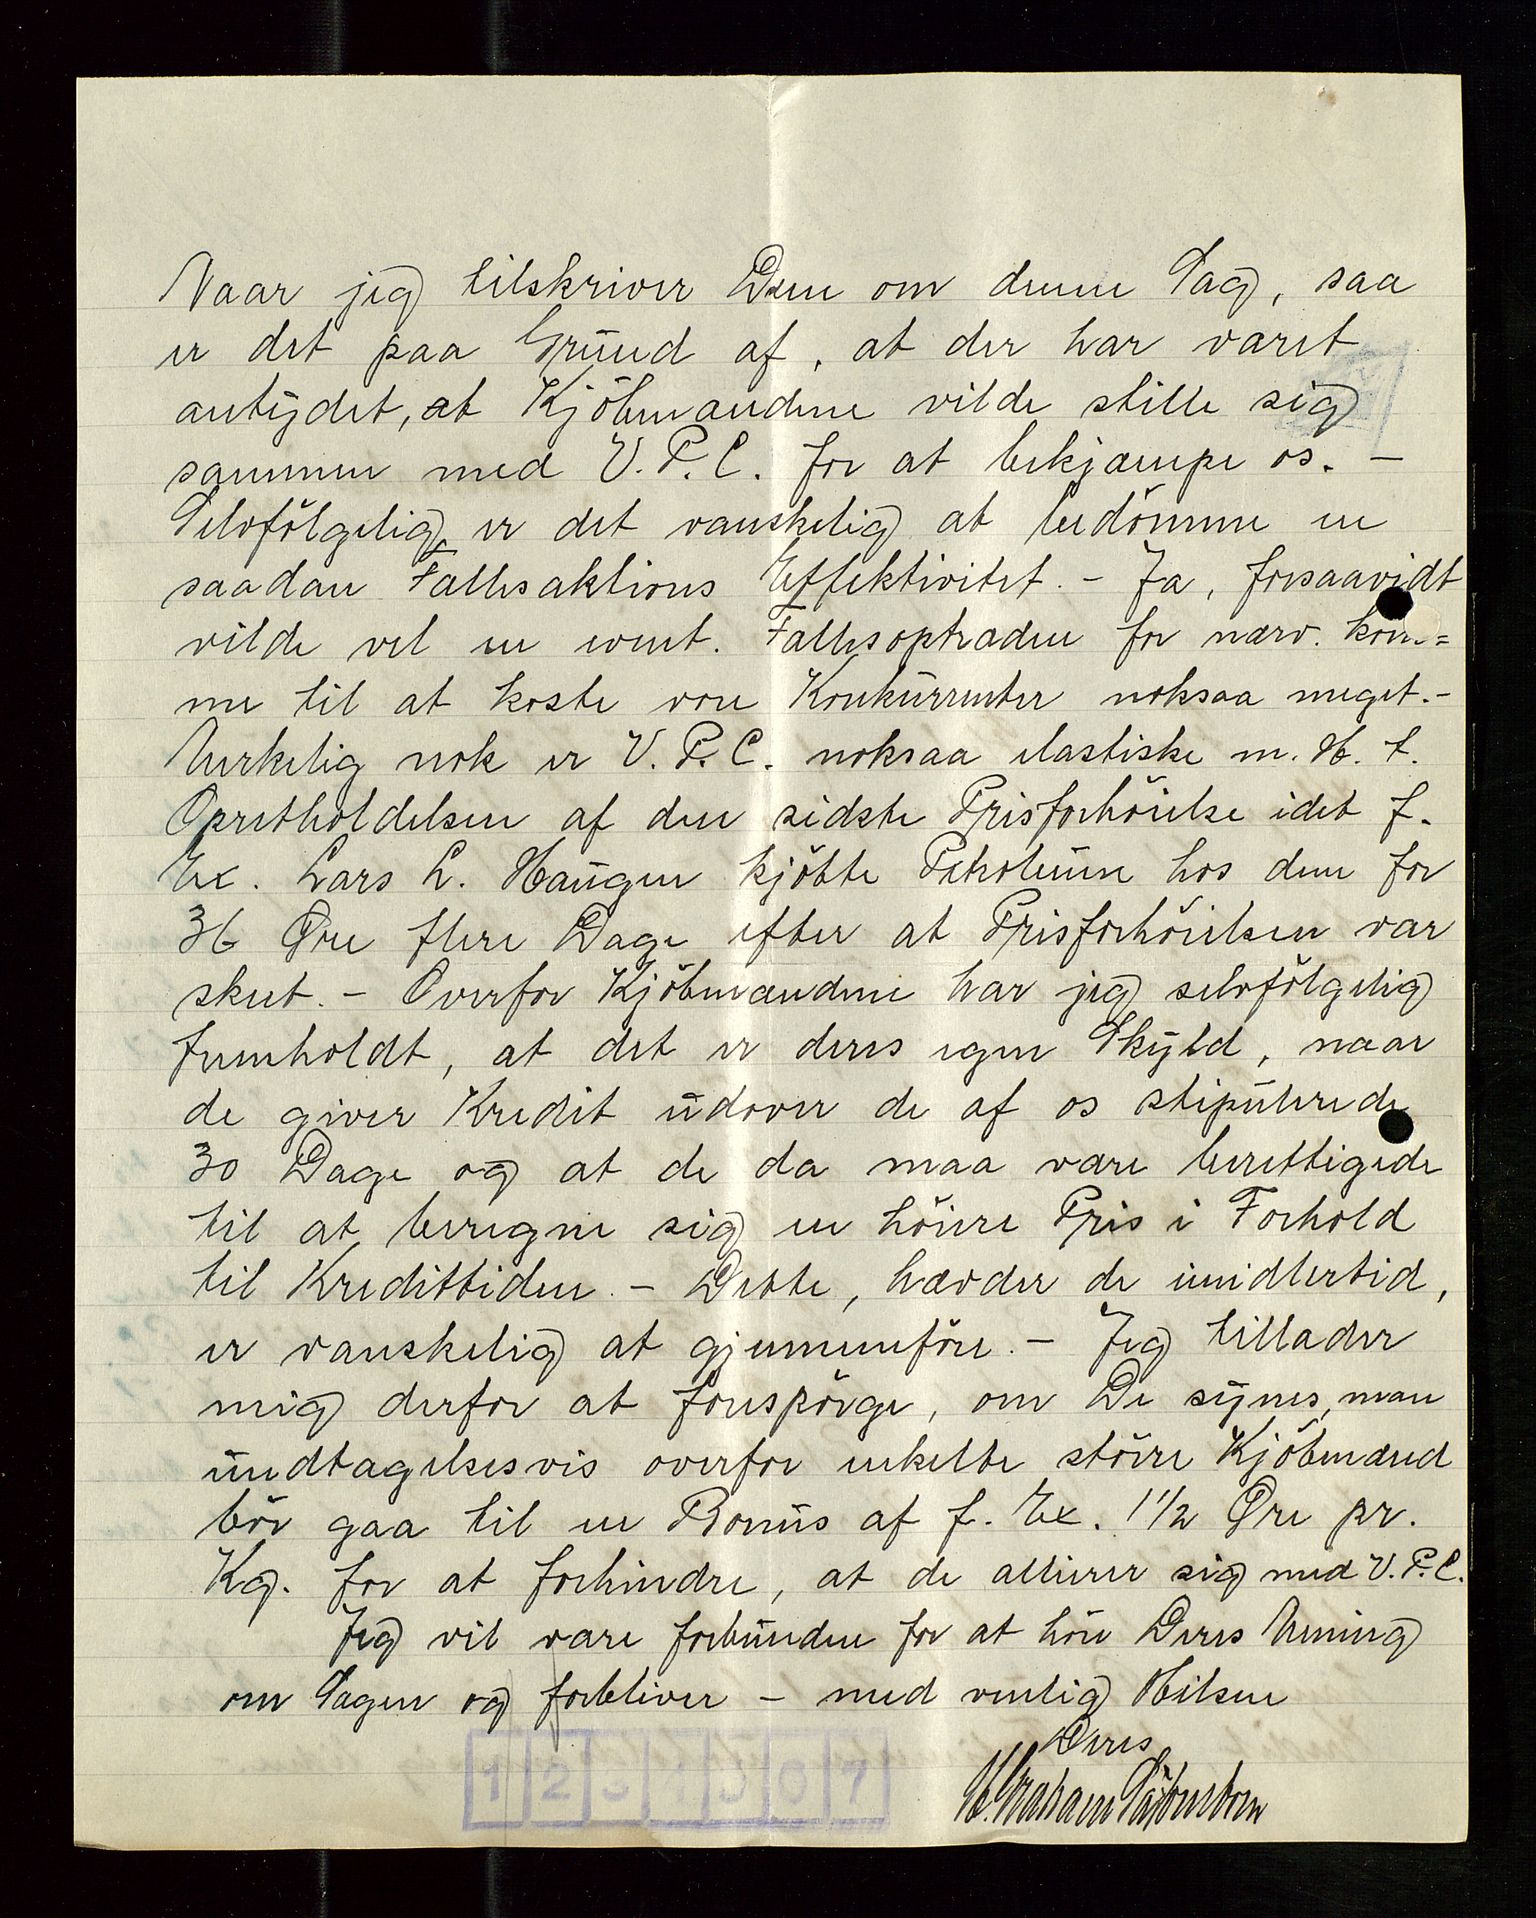 Naar jeg tilskriver Dem om denne Sag, saa
er det paa Grund af, at der har været
antydet, at Kjöbmændene vilde stille sig
sammen med V. P. C. for at bekjæmpe os. –
Selvfölgelig er det vanskelig at bedömme en
saadan Fællesaktions Effektivitet. – Ja, forsaavidt
vilde vel en event. Fællesoptræden for nærv. kom=
me til at koste vore Konkurrenter noksaa meget. –
Merkelig nok er V. P. C. noksaa elastiske m. H. t.
Opretholdelsen af den sidste Prisforhöielse idet f.
Ex. Lars L. Haugen kjöbte Petroleum hos dem for
36 Øre flere Dage efter at Prisforhöielsen var
skeet. – Overfor Kjöbmændene har jeg selvfölgelig
fremholdt, at det er deres egen Skyld, naar
de giver Kredit udover de af os stipulerede
30 Dage og at de da maa være berettigede
til at beregne sig en höiere Pris i Forhold
til Kredittiden. – Dette, hævder de imidlertid,
er vanskelig at gjennemföre. – Jeg tillader
mig derfor at forespörge, om De synes, man
undtagelsesvis overfor enkelte större Kjöbmænd
bör gaa til en Bonus af f. Ex. 1 1/2 Øre pr.
Kg. for at forhindre, at de allierer sig med V. P. C.
Jeg vil være forbunden for at höre Deres Mening
om Sagen og forbliver – med venlig Hilsen
Deres
H. Graham
1 2 3 4 5 6 7